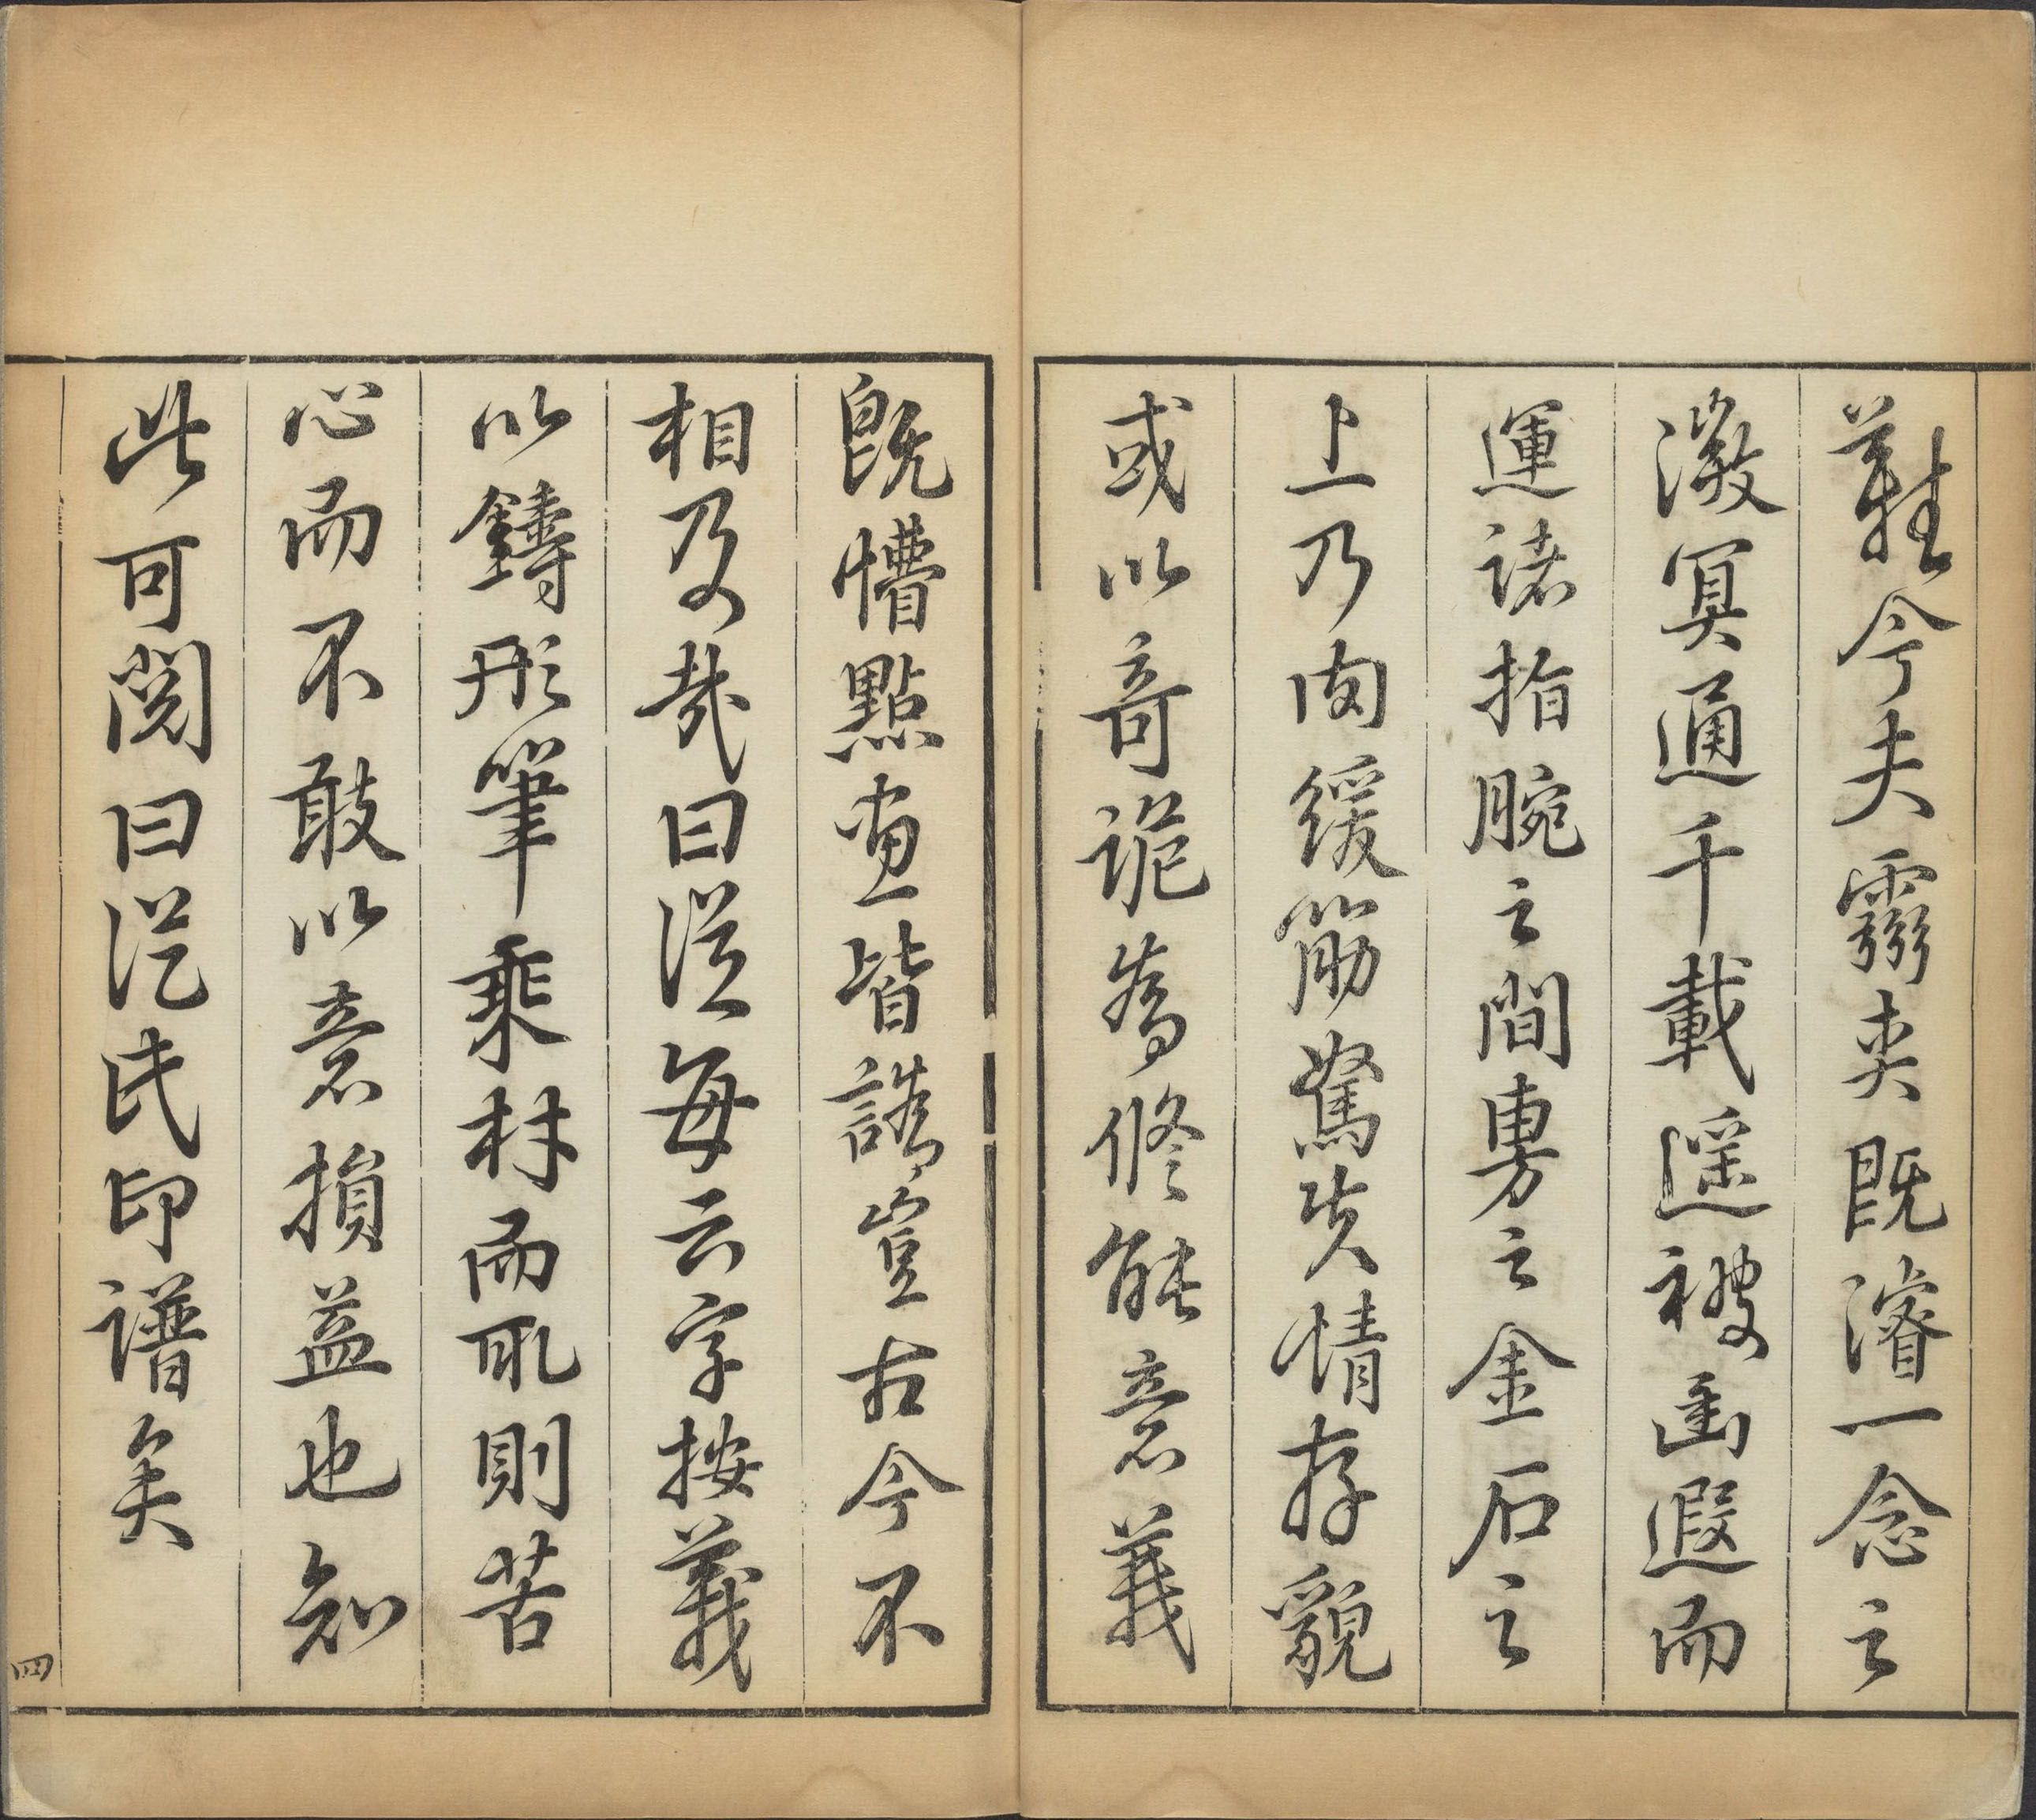 難今夫靈爽既濬一念之
澂冥通千載遥被幽遐而
運諸指腕之間旉之金石之
上乃肉緩筋駑失情存貌
或以奇詭為修能意義
既懵點畫皆譌豈古今不
相及哉曰從每云字按義
以鑄形筆乘材而取則苦
心而不敢以意損益也知
此可閱曰從氏印譜矣
四